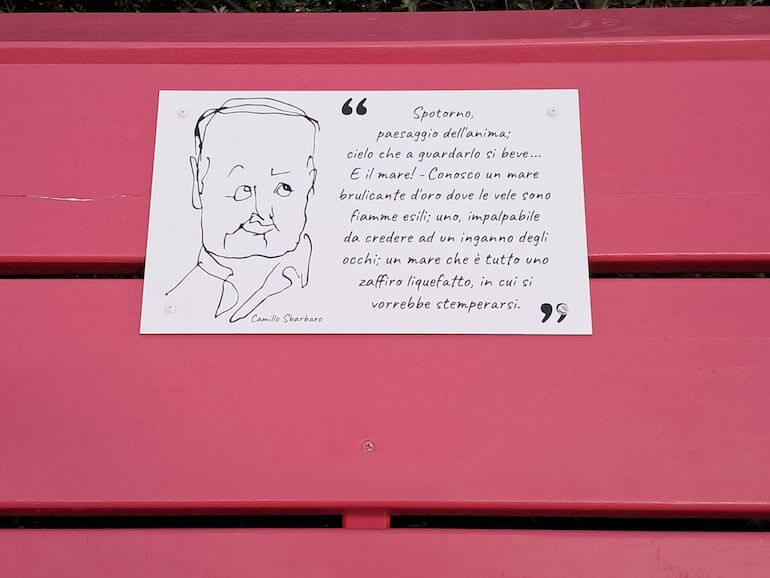 “ Spotorno,
paesaggio dell'anima;
cielo che a guardarlo si beve...
E il mare! - Conosco un mare
brulicante d'oro dove le vele sono
fiamme esili; uno, impalpabile
da credere ad un inganno degli
occhi; un mare che è tutto uno
zaffiro liquefatto, in cui si
vorrebbe stemperarsi. ”
Camillo Sbarbaro